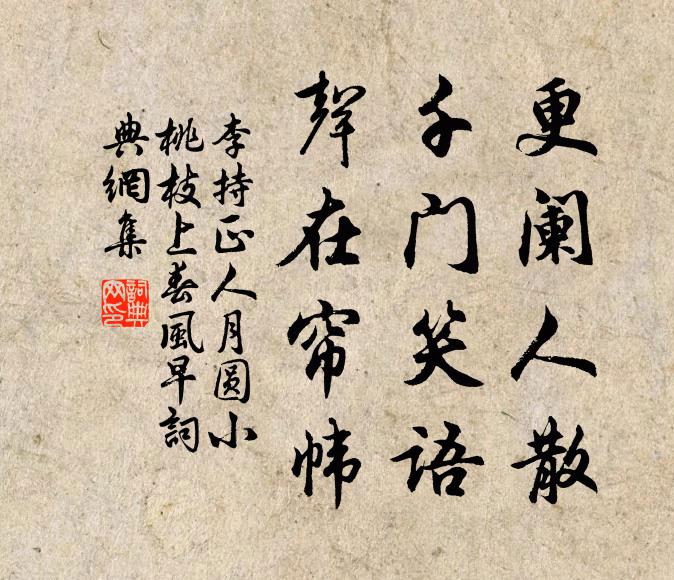 更阑人散
千门笑语
聲在帘帏
李持正人月圆小
桃枝上春風早詞
典網集
詞典
网印